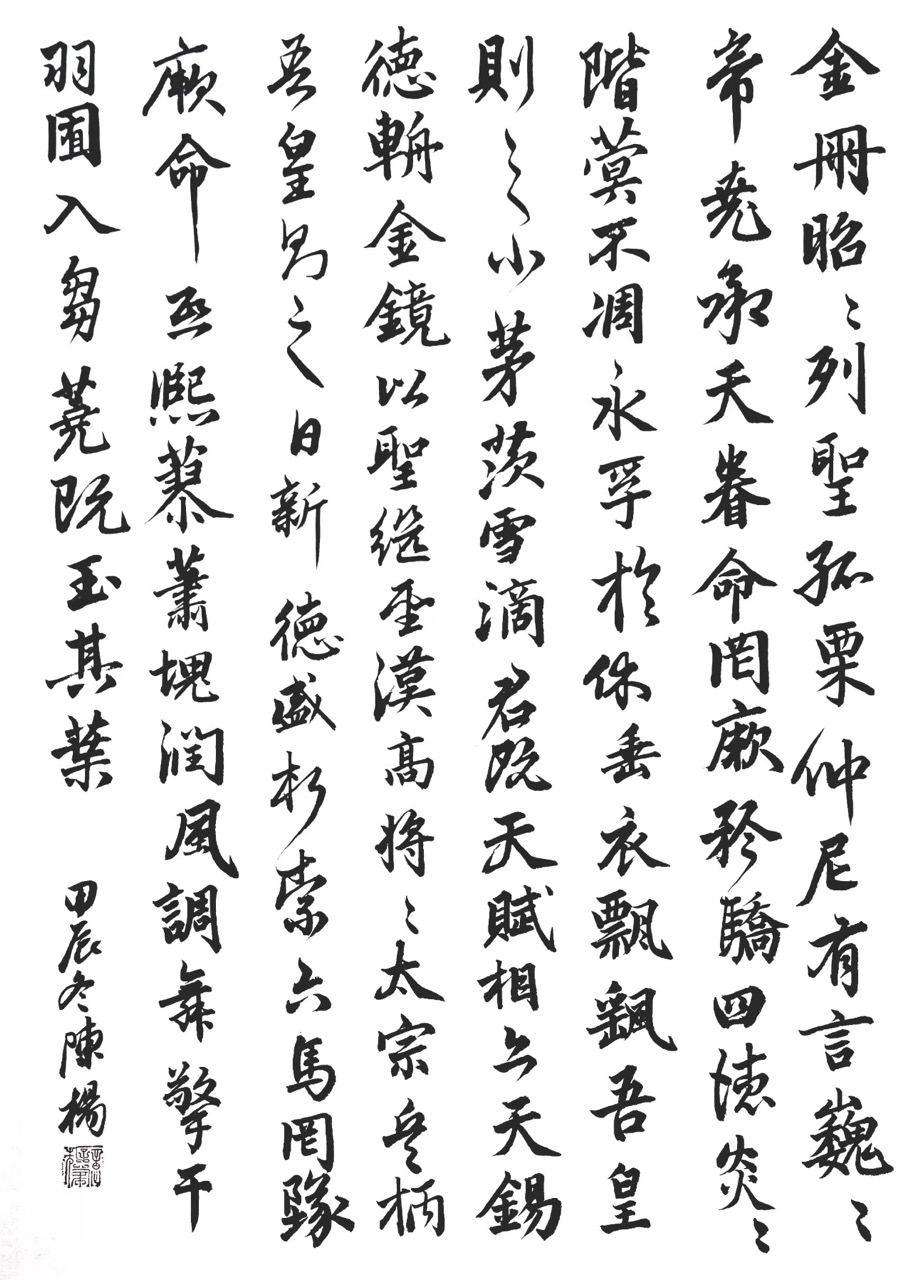 金冊昭〻列聖孤栗仲尼有言巍〻
帝堯承天眷命罔厥矜驕四德炎〻
階蓂不凋永孚於休垂衣飄飖吾皇
則之小茅茨雪滴君既天賦相亦天錫
德輧金鏡以聖繼聖漢高將〻太宗兵柄
吾皇則之日新德盛朽索六馬罔墜
厥命熙蓼蕭塊潤風調舞擎干
羽囿入芻蕘既玉其葉
甲辰冬陳楊